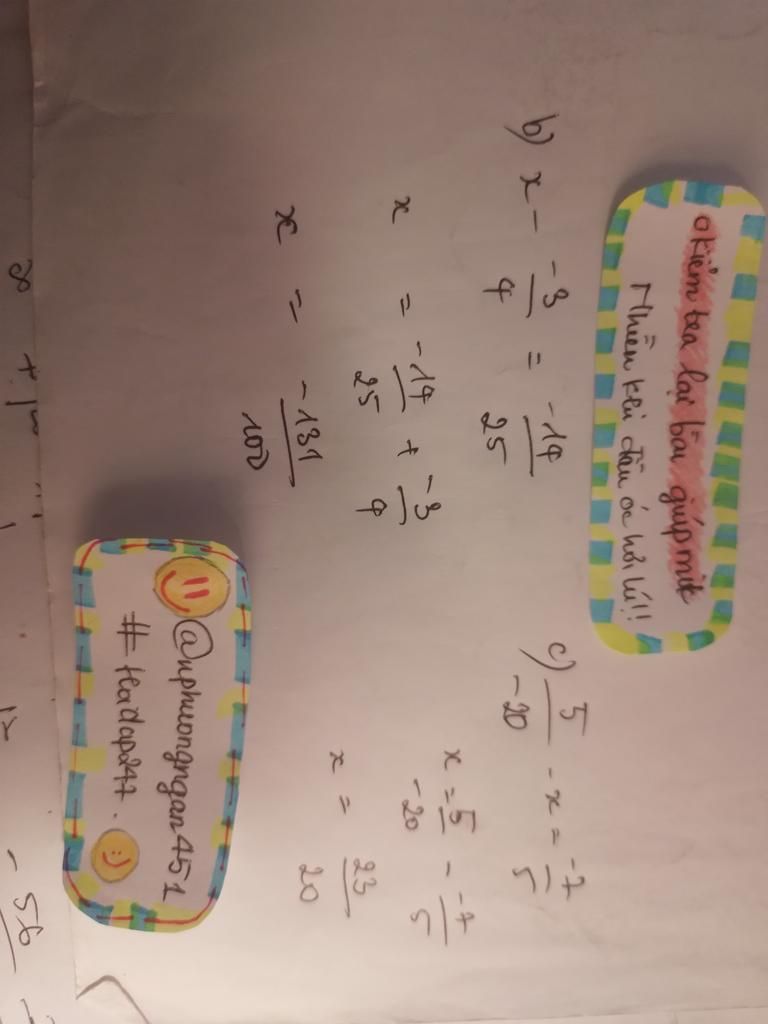 Kiểm tra lại bài giúp mik
Nhiều khi đầu óc hơi lú!!
b) x - -3/4 = -14/25
x = -14/25 + -3/4
x = -131/100
c) 5/-20 - x = -7/5
x = 5/-20 - -7/5
x = 23/20
@nphuongngan451
#Hoidap247.
:)
-56